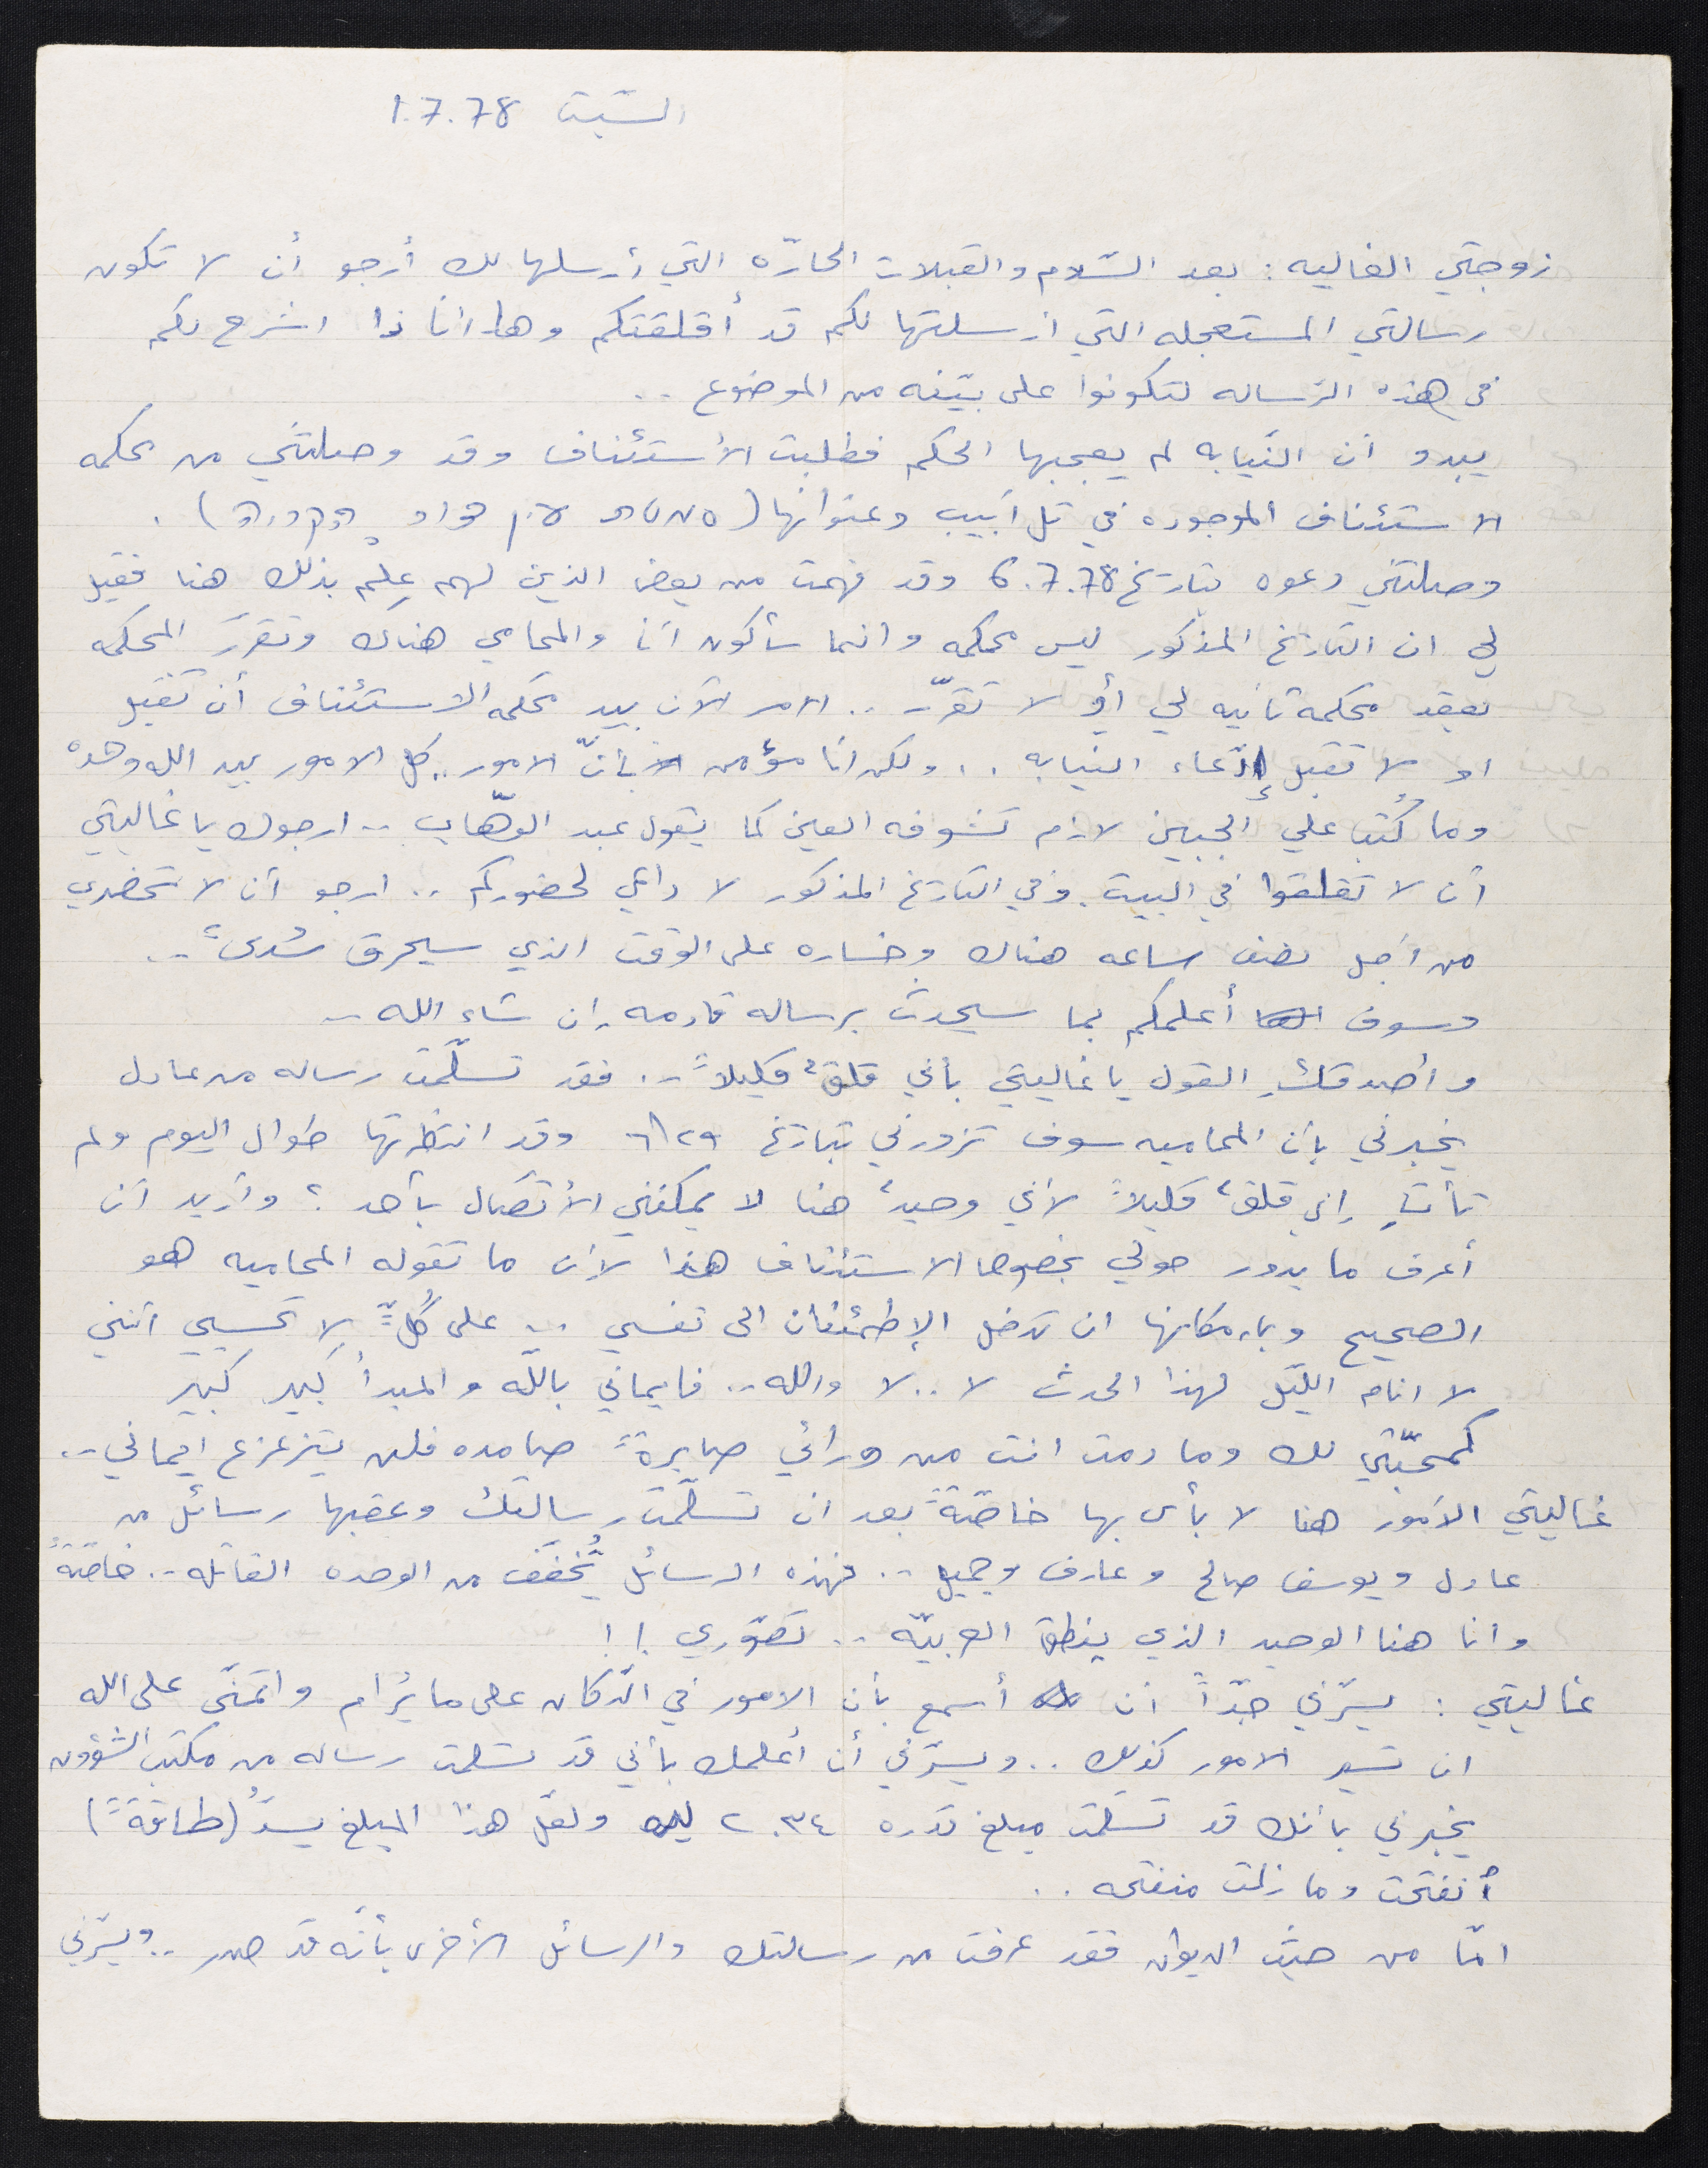 السّبت 1.7.78
زوجتي الغاليه: بعد السّلام والقبلات الحارّه التي أرسلها لك أرجو أن لا تكون
رسالتي المستعجله التي ارسلتها لكم قد أقلقتكم وها انا ذا اشرح لكم
في هذه الرّساله لتكونوا على بيّنه من الموضوع ..
يبدو أن النّيابه لم يعجبها الحكم فطلبت الأستئناف وقد وصلتني من محكمه
الاستئناف الموجوده في تل أبيب وعنوانها (
وصلتني دعوه بتاريخ 6.7.78 وقد فهمت من بعض الذين لهم عِلم بذلك هنا فقيل
لي ان التاريخ المذكور ليس محكمه وانما سأكون أنا والمحامي هناك وتقرّر المحكمه
بعقد محكمة ثانيه لي أو لا تقرّر .. الامر الآن بيد محكمه الاستئناف أن تقبل
او لا تقبل إدّعاء النيابه .. ولكن انا مؤمن بأنّ الامور.. كل الامور بيد الله وحدهُ
وما كُتب علي الجبين لازم تشوفه العين كما يقول عبد الوهّاب .. ارجوك يا غاليتي
أن لا تقلقوا في البيت. وفي التاريخ المذكور لا داعي لحضوركم .. ارجو أن لا تحضري
من أجل نصف ساعه هناك وخساره على الوقت الذي سيحرق سُدىً ..
وسوف أعلمكم بما سيحدث برساله قادمه ان شاء الله ..
وأصدقكِ القول يا غاليتي بأني قلقٌ قليلاً .. فقد تسلّمت رساله من عادل
يخبرني بأن المحاميه سوف تزورني بتاريخ ٦/٢٩ وقد انتظرتها طوال اليوم ولم
تأتِ. إني قلقٌ قليلاً لأني وحيدٌ هنا لا يمكنني الأتصال بأحد ؟ وأريد أن
أعرف ما يدور حولي بخصوص الاستئناف هذا لأن ما تقوله المحاميه هو
الصحيح وبإمكانها ان تدخل الإطمئنان الى نفسي .. على كُلٍّ لا تحسبي أنني
لا انام الليّل لهذا الحدث لا .. لا والله .. فإيماني بالله والمبدأ كبير كبير
كمحبّتي لك وما دمت انت من ورائي صابرةً صامده فلن يتزعزع ايماني ..
غاليتي الأمور هنا لا بأس بها خاصّةً بعد ان تسلّمت رسالتك وعقبها رسائل من
عادل ويوسف صالح وعارف وجميل .. فهذه الرسائل تُخفّف من الوحده القاتله .. خاصّةً
وانا هنا الوحيد الذي ينطق العربيّه .. تصوّري !!
غاليتي : يسرّني جدّاً أن أسمع بأن الامور في الدّكان على ما يُرام واتمنّى على الله
ان تسير الامور كذلك .. ويسرّني أن أعلمك بأني قد تسلمت رساله من مكتب الشؤون
يخبرني بأنك قد تسلّمت مبلغ قدره ٢٠٣٤ ولعّل هذا المبلغ يسدُّ (طاقةً)
أنفتحت وما زلت منفتحه ..
امّا من حيث الديوان فقد عرفت من رسالتك والرسائل الأخرى بأنّه قد صدر .. ويسرّني